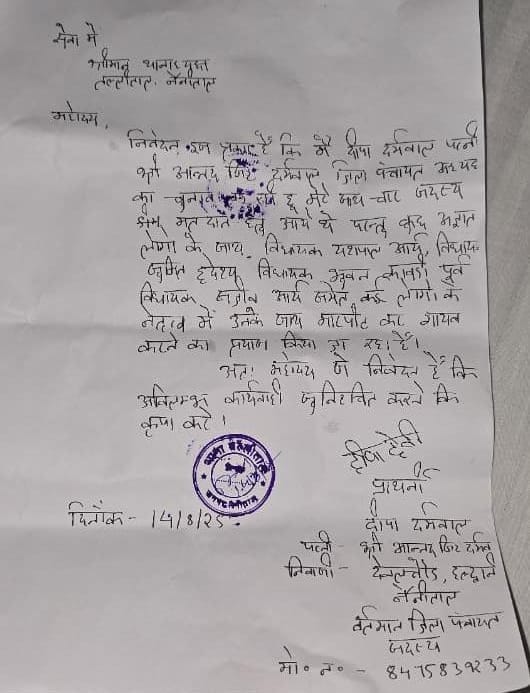 सेवा में
श्रीमान थानाध्यक्ष
तल्लीताल, नैनीताल
महोदय,
निवेदन इस प्रकार है कि मैं दीपा दर्मवाल पत्नी
श्री आनन्द सिंह दर्मवाल जिला पंचायत अध्यक्ष
का चुनाव लड़ रही हूं मेरे साथ चार सदस्य
मतदान हेतु आये थे परन्तु कुछ अज्ञात
लोगों के साथ, विधायक यशपाल आर्य, विधायक
सुमित हृदयेश विधायक भुवन कापड़ी पूर्व
विधायक संजीव आर्य समेत कई लोगों के
नेतृत्व में उनके साथ मारपीट कर गायब
करने का प्रयास किया जा रहा है।
अतः महोदय से निवेदन है कि
अविलम्ब कार्यवाही सुनिश्चित करने कि
कृपा करें।
प्रार्थनी
दिनाँक - 14/8/25
दीपा दर्मवाल
पत्नी - श्री आनन्द सिंह
निवासी - देवलचौड़, हल्द्वानी
नैनीताल
वर्तमान जिला पंचायत
सदस्य
मो० न० - 8475839233